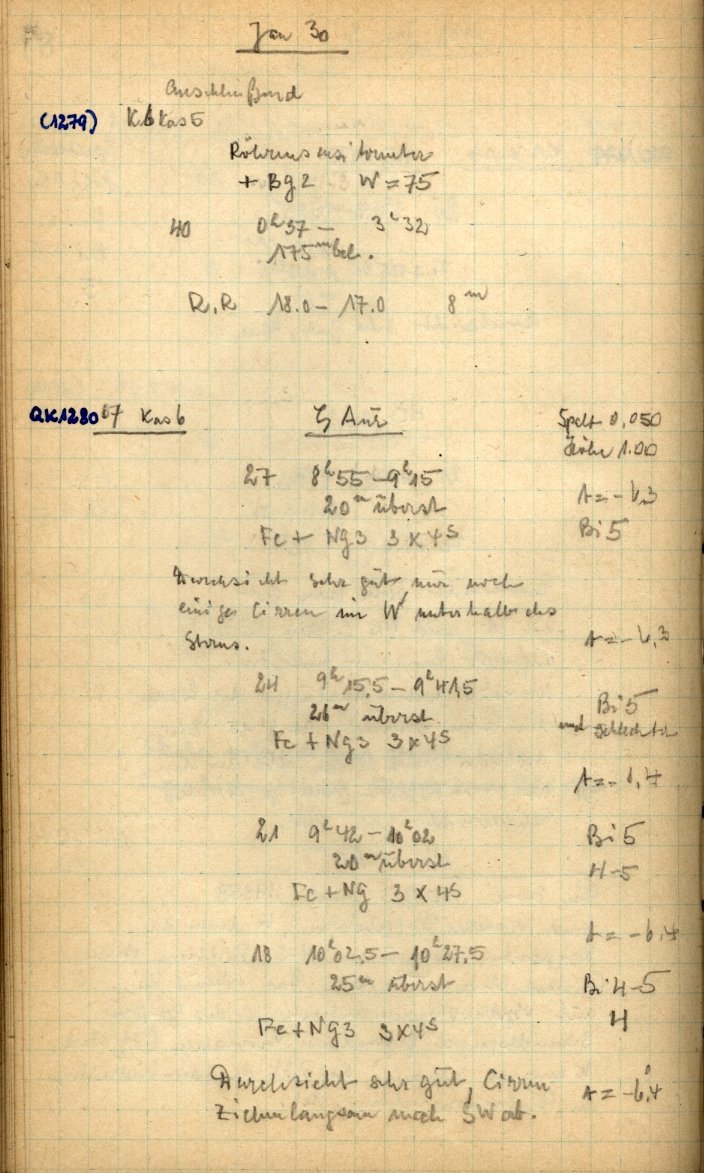 Jan 30
Anschließend
(1279) K6 Kas 5
+ Bg 2 W = 75
40 0h37 – 3h32
175m bel.
R.R 18.0 – 17.0 8m
QK1280 07 Kas 6 ζ Aur Spalt 0,050
Höhe 1.00
27 8h55 – 9h15
20m überst
A = – 6,3
Fe + Ng3 3 x 4s Bi 5
Durchsicht sehr gut nur noch
einige Cirren im W unterhalb des
Sterns. A = – 6,3
24 9h15,5 – 9h41,5
26m überst Bi 5
Fe + Ng3 3 x 4s und schlechter
21 9h42 – 10h02 Bi 5
20m überst 4-5
Fe + Ng 3 x 4s
A = – 6,4
18 10h02,5 – 10h27,5
25m überst Bi 4-5
Fe + Ng3 3 x 4s 4
Durchsicht sehr gut, Cirren A = – 6,4
ziehen langsam nach SW ab.